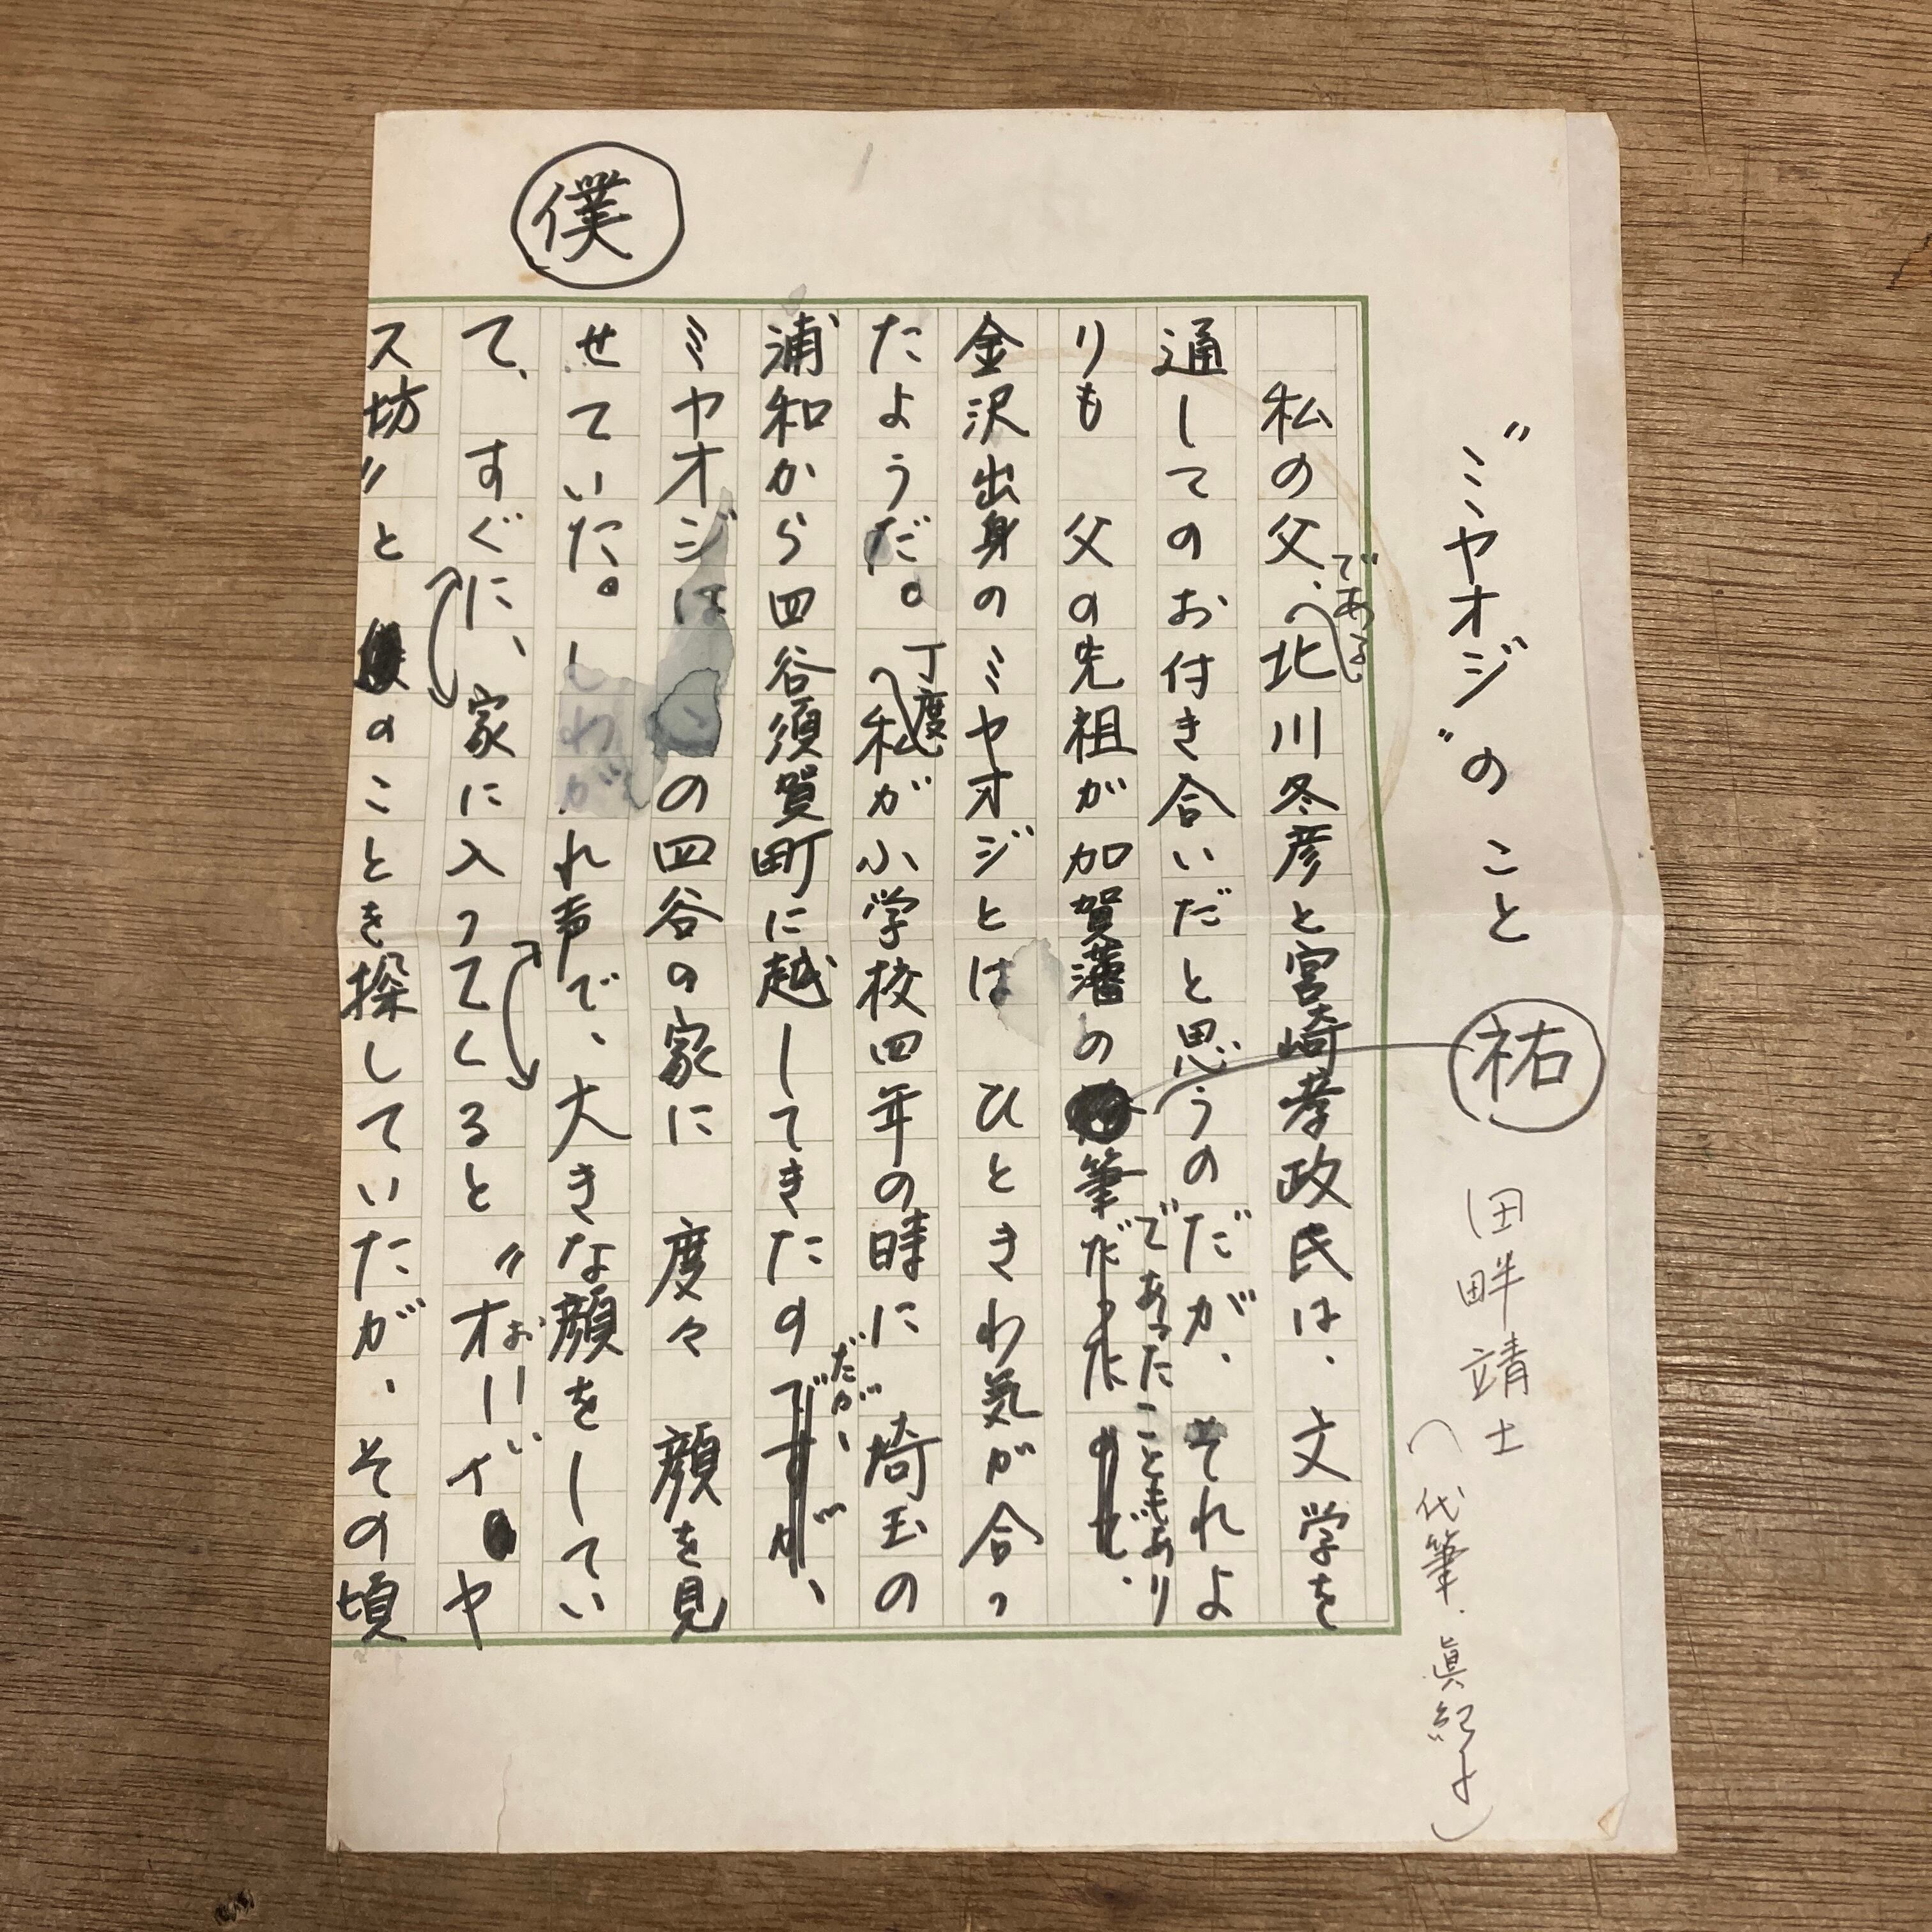 “ミヤオジ”のこと
祐
田畔靖士
(代筆.眞紀子)
私の父、北川冬彦と宮崎孝政氏は、文学を
である
通してのお付き合いだと思うのだが、それよ
りも 父の先祖が加賀藩の筆だったので、
であったこともあり
金沢出身のミヤオジとは ひときわ気が合っ
たようだ。私が小学校四年の時に 埼玉の
丁度
浦和から四谷須賀町に越してきたのですが、
だが、
ミヤオジは、の四谷の家に 度々 顔を見
せていた。しわがれ声で、大きな顔をしてい
て、すぐに、家に入ってくると 〃オーイヤ
おーい
ス坊〃と のことを探していたが、その頃
僕